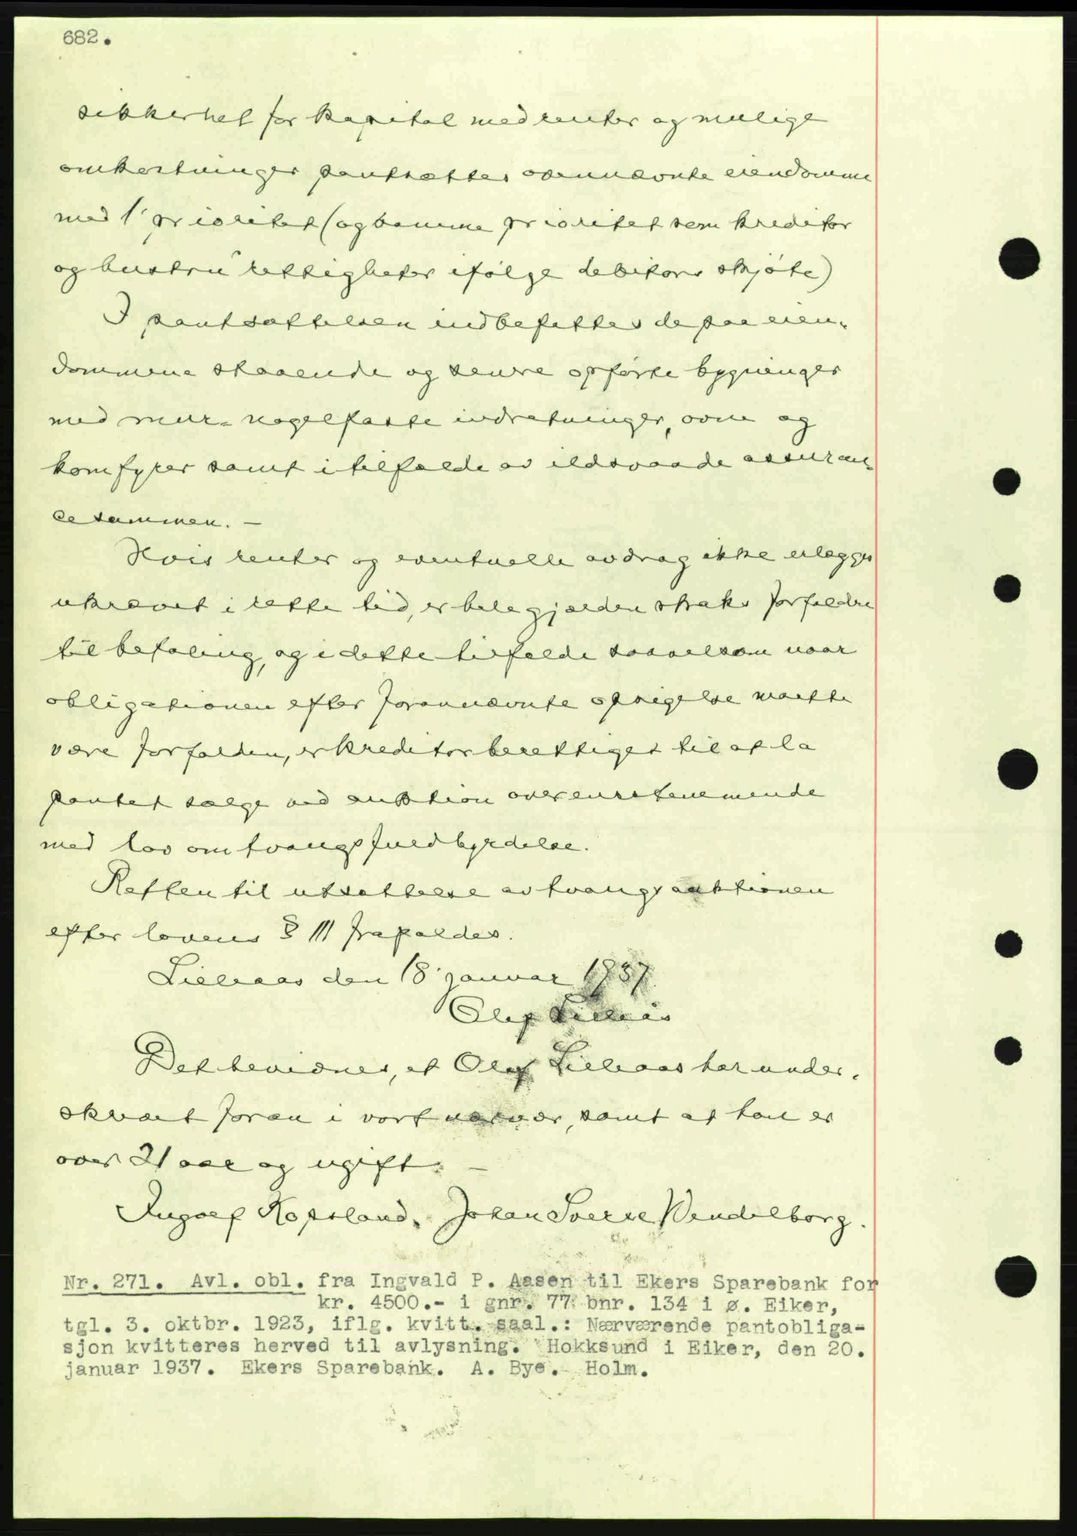 682.
sikkerhet for kapital med renter og mulige
omkostninger pantsættes ovennævnte eiendomme
med 1' prioritet (og samme prioritet som kreditor
og hustru rettigheter ifølge debitors skjøte)
I pantsættelsen indbefattes de paa eien-
dommene staaende og senere opførte bygninger
med mur- nagelfaste indretninger, ovne og
komfyrer samt i tilfælde av ildsvaade assuran-
cesummen. —
Hvis renter og eventuelle avdrag ikke erlægges
ukrævet i rette tid, er hele gjælden straks forfalden
til betaling, og i dette tilfælde saavelsom naar
obligationen efter forannævnte opsigelse maatte
være forfalden, er kreditor berettiget til at la
pantet sælge ved auktion overensstemmende
med lov om tvangsfuldbyrdelse.
Retten til utsættelse av tvangsauktionen
efter lovens § 111 frafaldes.
Lielraas den 18' januar 1937
Olaf
Det bevidnes, at Olaf Lielraas har under-
skrevet foran i vort nærvær, samt at han er
over 21 aar og ugift. —
Ingolf Kopsland. Johan Sverre Wendelborg.
Nr. 271. Avl. obl. fra Ingvald P. Aasen til Ekers Sparebank for
kr. 4500.- i gnr. 77 bnr. 134 i ø. Eiker,
tgl. 3. oktbr. 1923, iflg. kvitt. saal.: Nærværende pantobliga-
sjon kvitteres herved til avlysning. Hokksund i Eiker, den 20.
januar 1937. Ekers Sparebank. A. Bye. Holm.